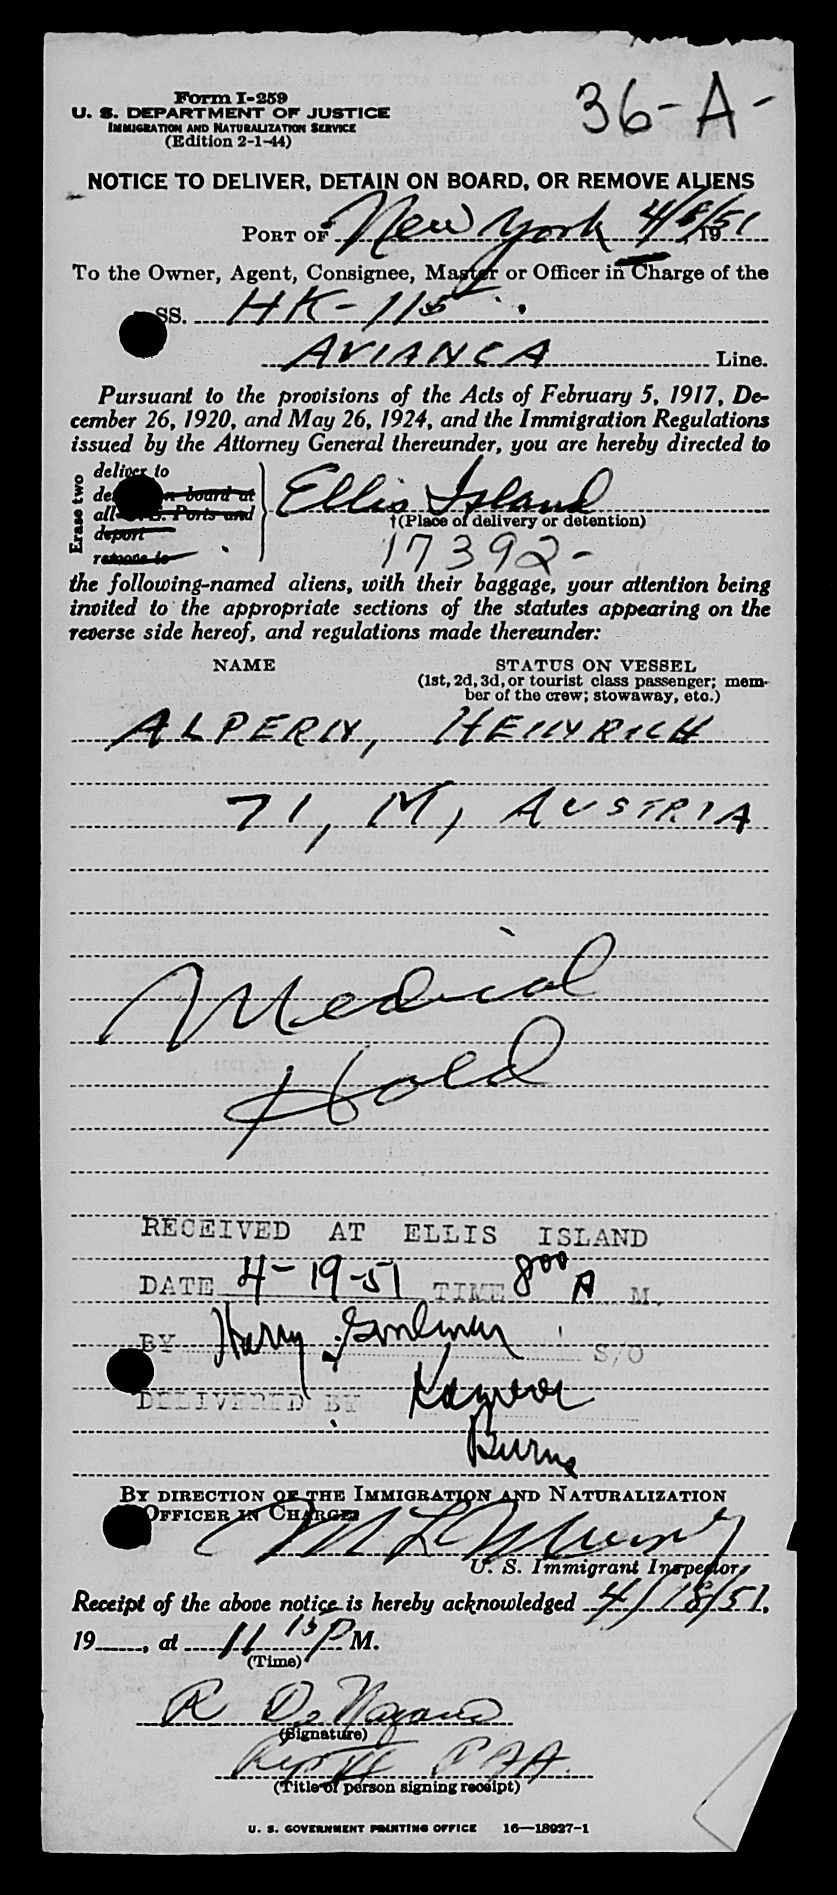 Form I-259
36-A-
U. S. DEPARTMENT OF JUSTICE
IMMIGRATION AND NATURALIZATION SERVICE
(Edition 2-1-44)
NOTICE TO DELIVER, DETAIN ON BOARD, OR REMOVE ALIENS
PORT OF New York 4/18/51, 19
To the Owner, Agent, Consignee, Master or Officer in Charge of the
SS. HK-115
AVIANCA Line.
Pursuant to the provisions of the Acts of February 5, 1917, De-
cember 26, 1920, and May 26, 1924, and the Immigration Regulations
issued by the Attorney General thereunder, you are hereby directed to
Erase two
deliver to
on board at
all U. S. Ports and
deport
remove to
Ellis Island
†(Place of delivery or detention)
17392-
the following-named aliens, with their baggage, your attention being
invited to the appropriate sections of the statutes appearing on the
reverse side hereof, and regulations made thereunder:
NAME STATUS ON VESSEL
(1st, 2d, 3d, or tourist class passenger; mem-
ber of the crew; stowaway, etc.)
ALPERIN, HEINRICH
71, M, AUSTRIA
Medical
Hold
RECEIVED AT ELLIS ISLAND
DATE 4-19-51 TIME 8 00 A M.
BY Harry S/O
DELIVERED BY
Burns
BY DIRECTION OF THE IMMIGRATION AND NATURALIZATION
OFFICER IN CHARGE:
M L
U. S. Immigrant Inspector.
Receipt of the above notice is hereby acknowledged 4/18/51,
19__, at 11 15 P M.
(Time)
R
(Signature)
PAA.
(Title of person signing receipt)
U. S. GOVERNMENT PRINTING OFFICE 16—18927-1